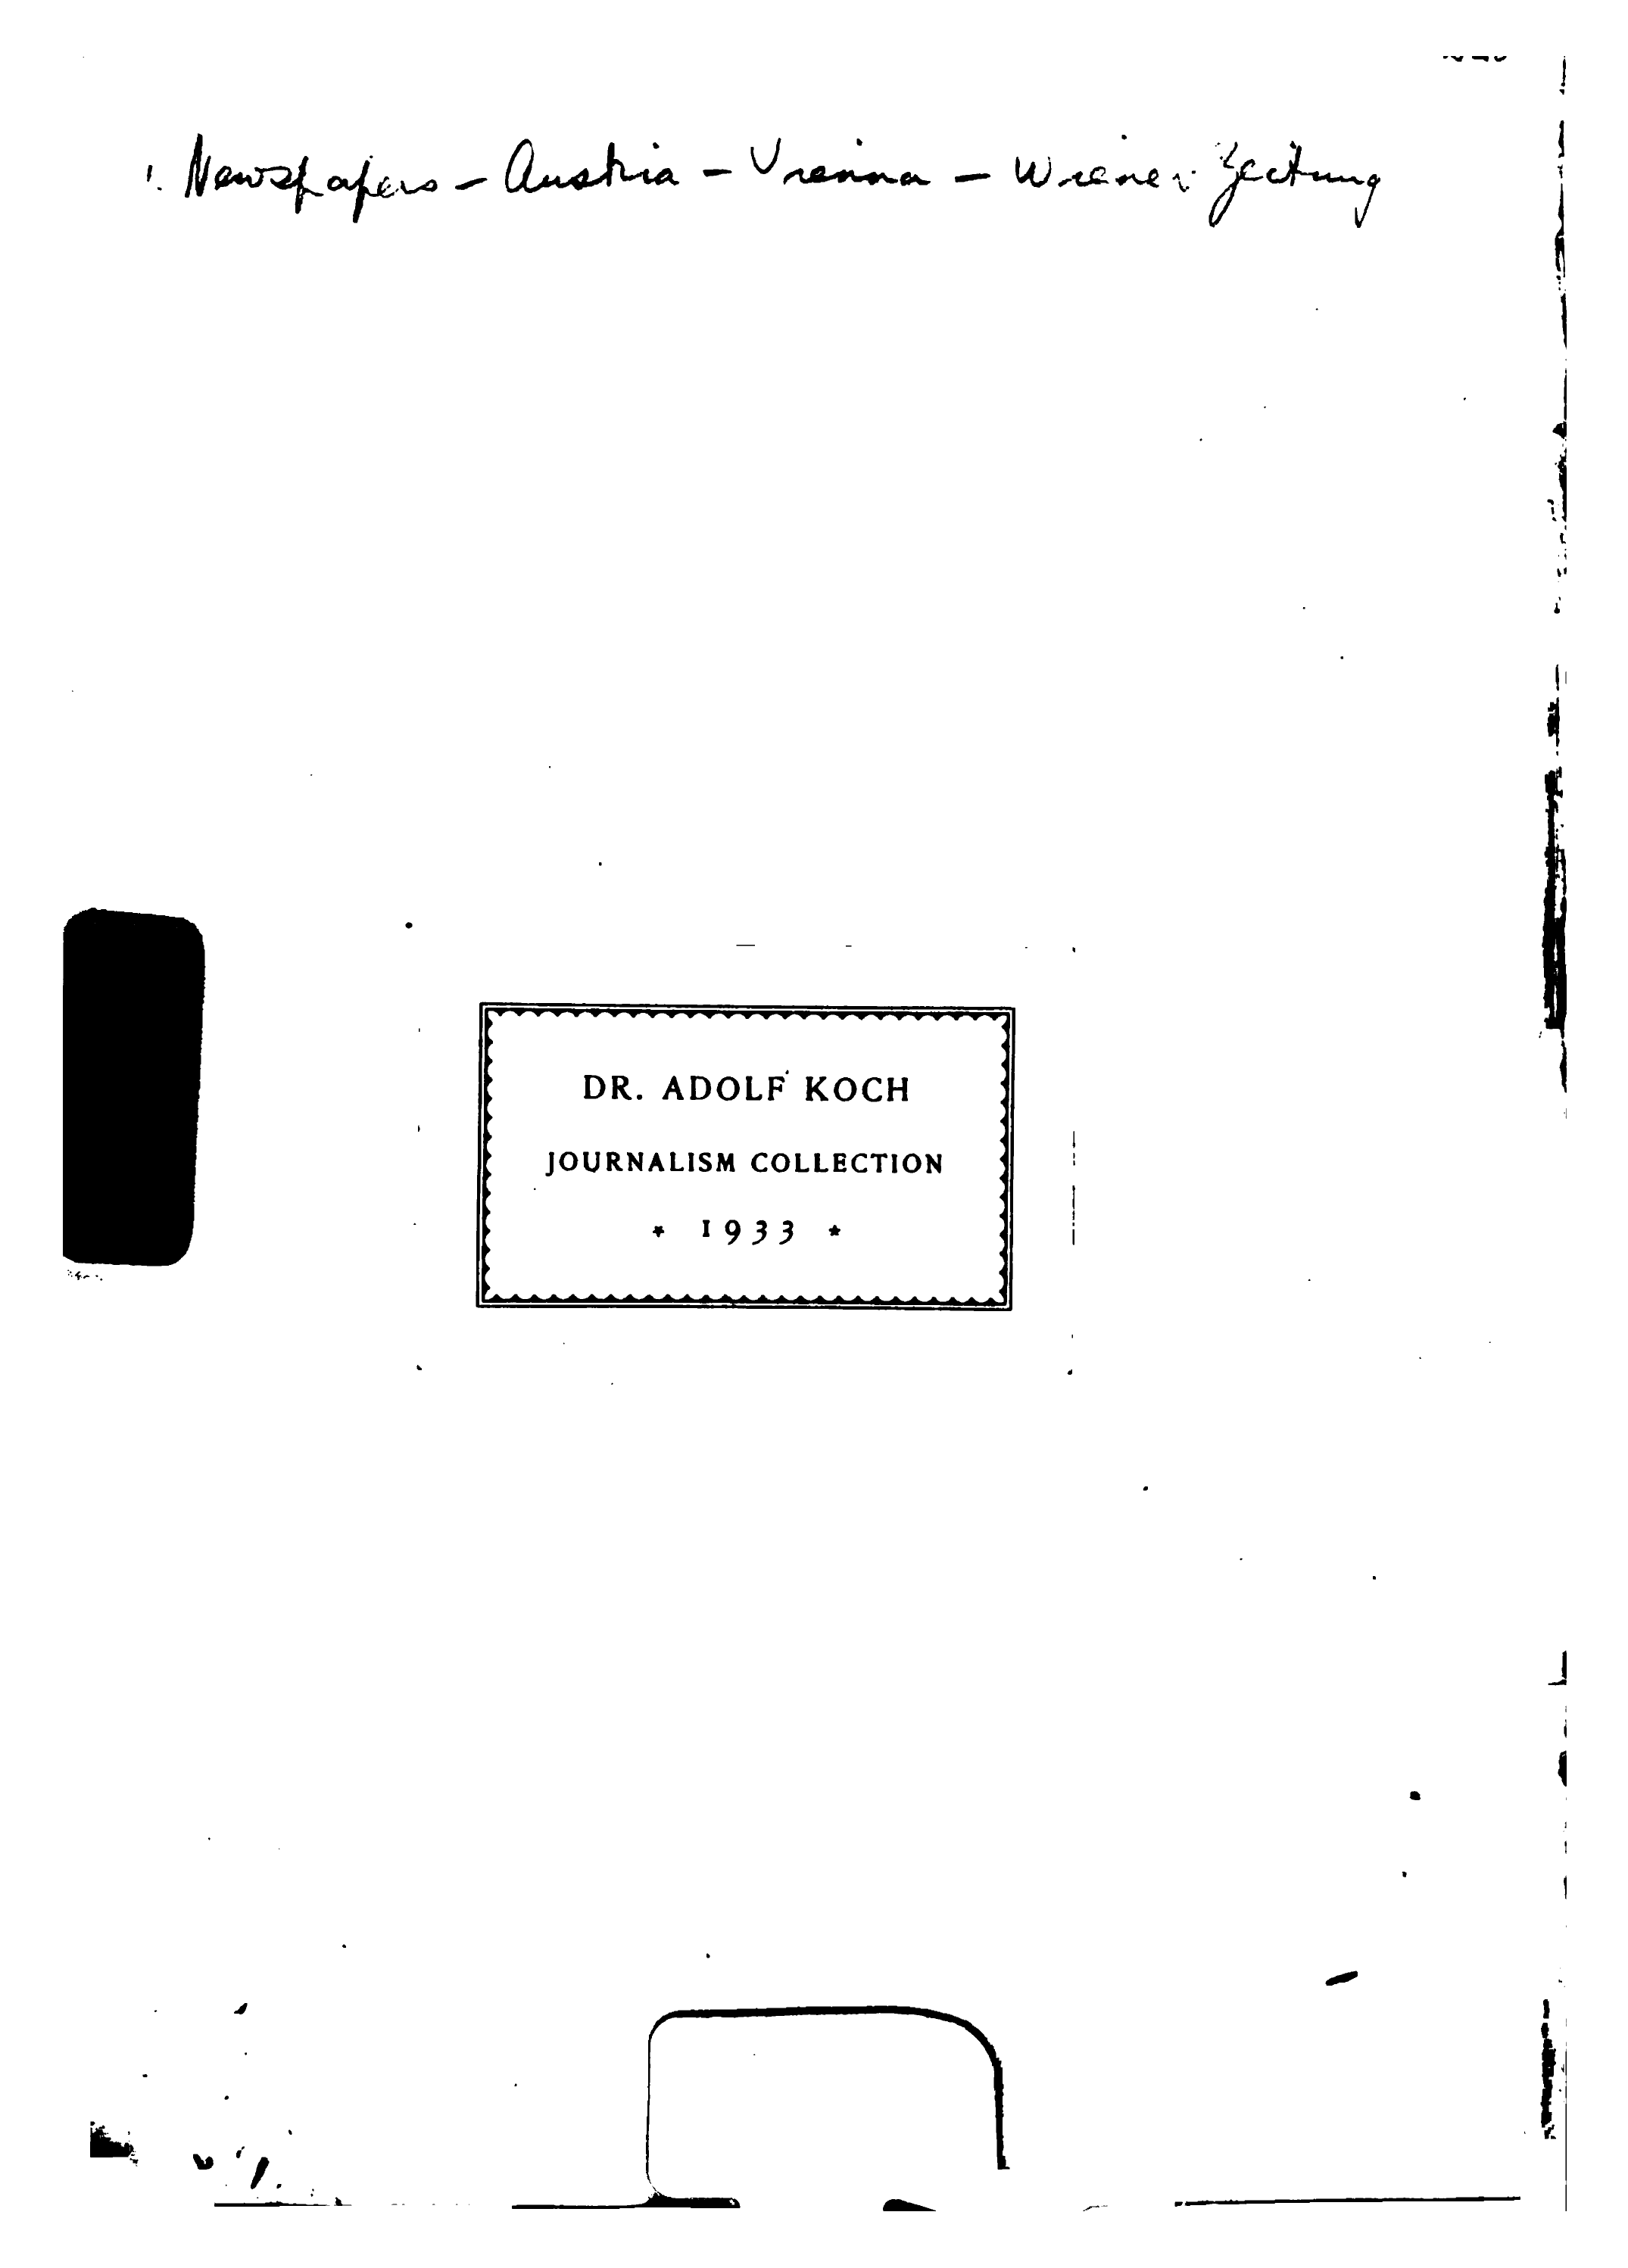 1. Newspapers – Austria – Vienna – Wiener Zeitung
DR. ADOLF KOCH
JOURNALISM COLLECTION
* 1933 *